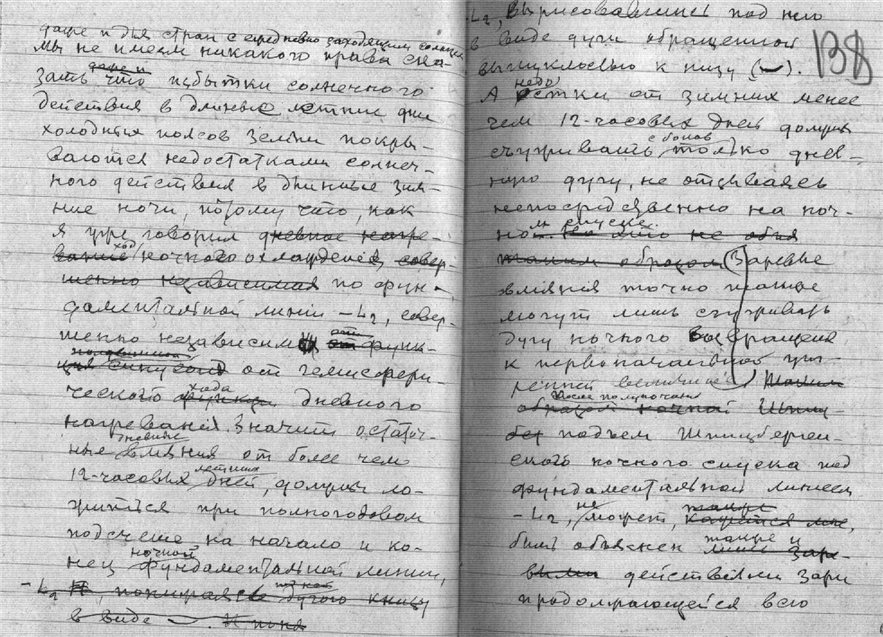 даже и для стран с ежедневно заходящим солнцем
мы не имеем никакого права ска-
зать даже и что избытки солнечного
действия в длинные летние дни
холодных поясов Земли покры-
ваются недостатками солнеч-
ного действия в длинные зим-
ние ночи, потому что, как
я уже говорил дневное нагре-
вание ход ночного охлаждения, совер-
шенно независимая по фун-
даментальной линии –L₂, совер-
шенно независим от функ-
ция от гемисфери-
ческого хода дневного
нагревания. Значит остаточ-
ные дневные влияния от более чем
12-часовых летних дней, должны ло-
житься при полногодовом
подсчете на начало и ко-
нец ночной фундаментальной линии,
–L₂ дугою книзу
в виде ⌣.
138
–L₂, вырисовавшись под нею
в виде дуги обращенной
выпуклостью к низу (⌣).
А недо от зимних менее
чем 12-часовых дней должны
съуживать с боков только днев-
ную дугу, не отзываясь
непосредственно на ноч-
ном спуске.
таким образом (Заревые
влияния точно также
могут лишь съуживать
дугу ночного возвращения
к первоначальной
величине) Таким
образом ночной После полуночи
подъем Шпицберген-
ского ночного спуска над
фундаментальной линией
–L₂, не может, также
быть объяснен также и
действиями зари
продолжающейся всю